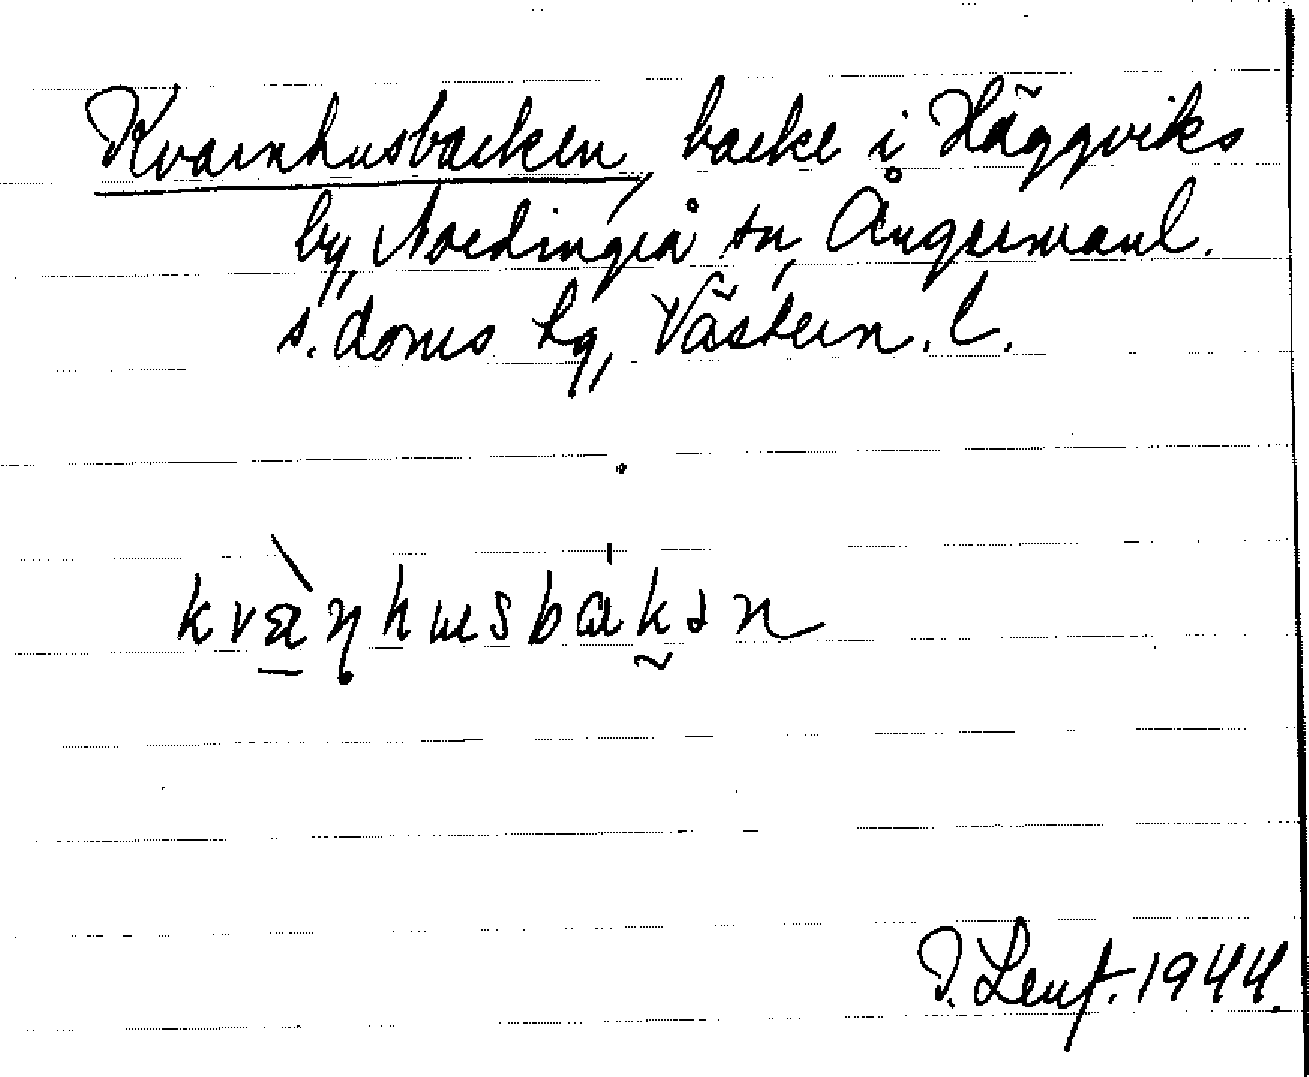 Kvarnhusbacken, backe i Häggviks
by, Nordingrå sn, Ångermanl.
s. doms. tg, Västern. l.
kvæ̀ŋhusbakən
I. Lenf. 1944.